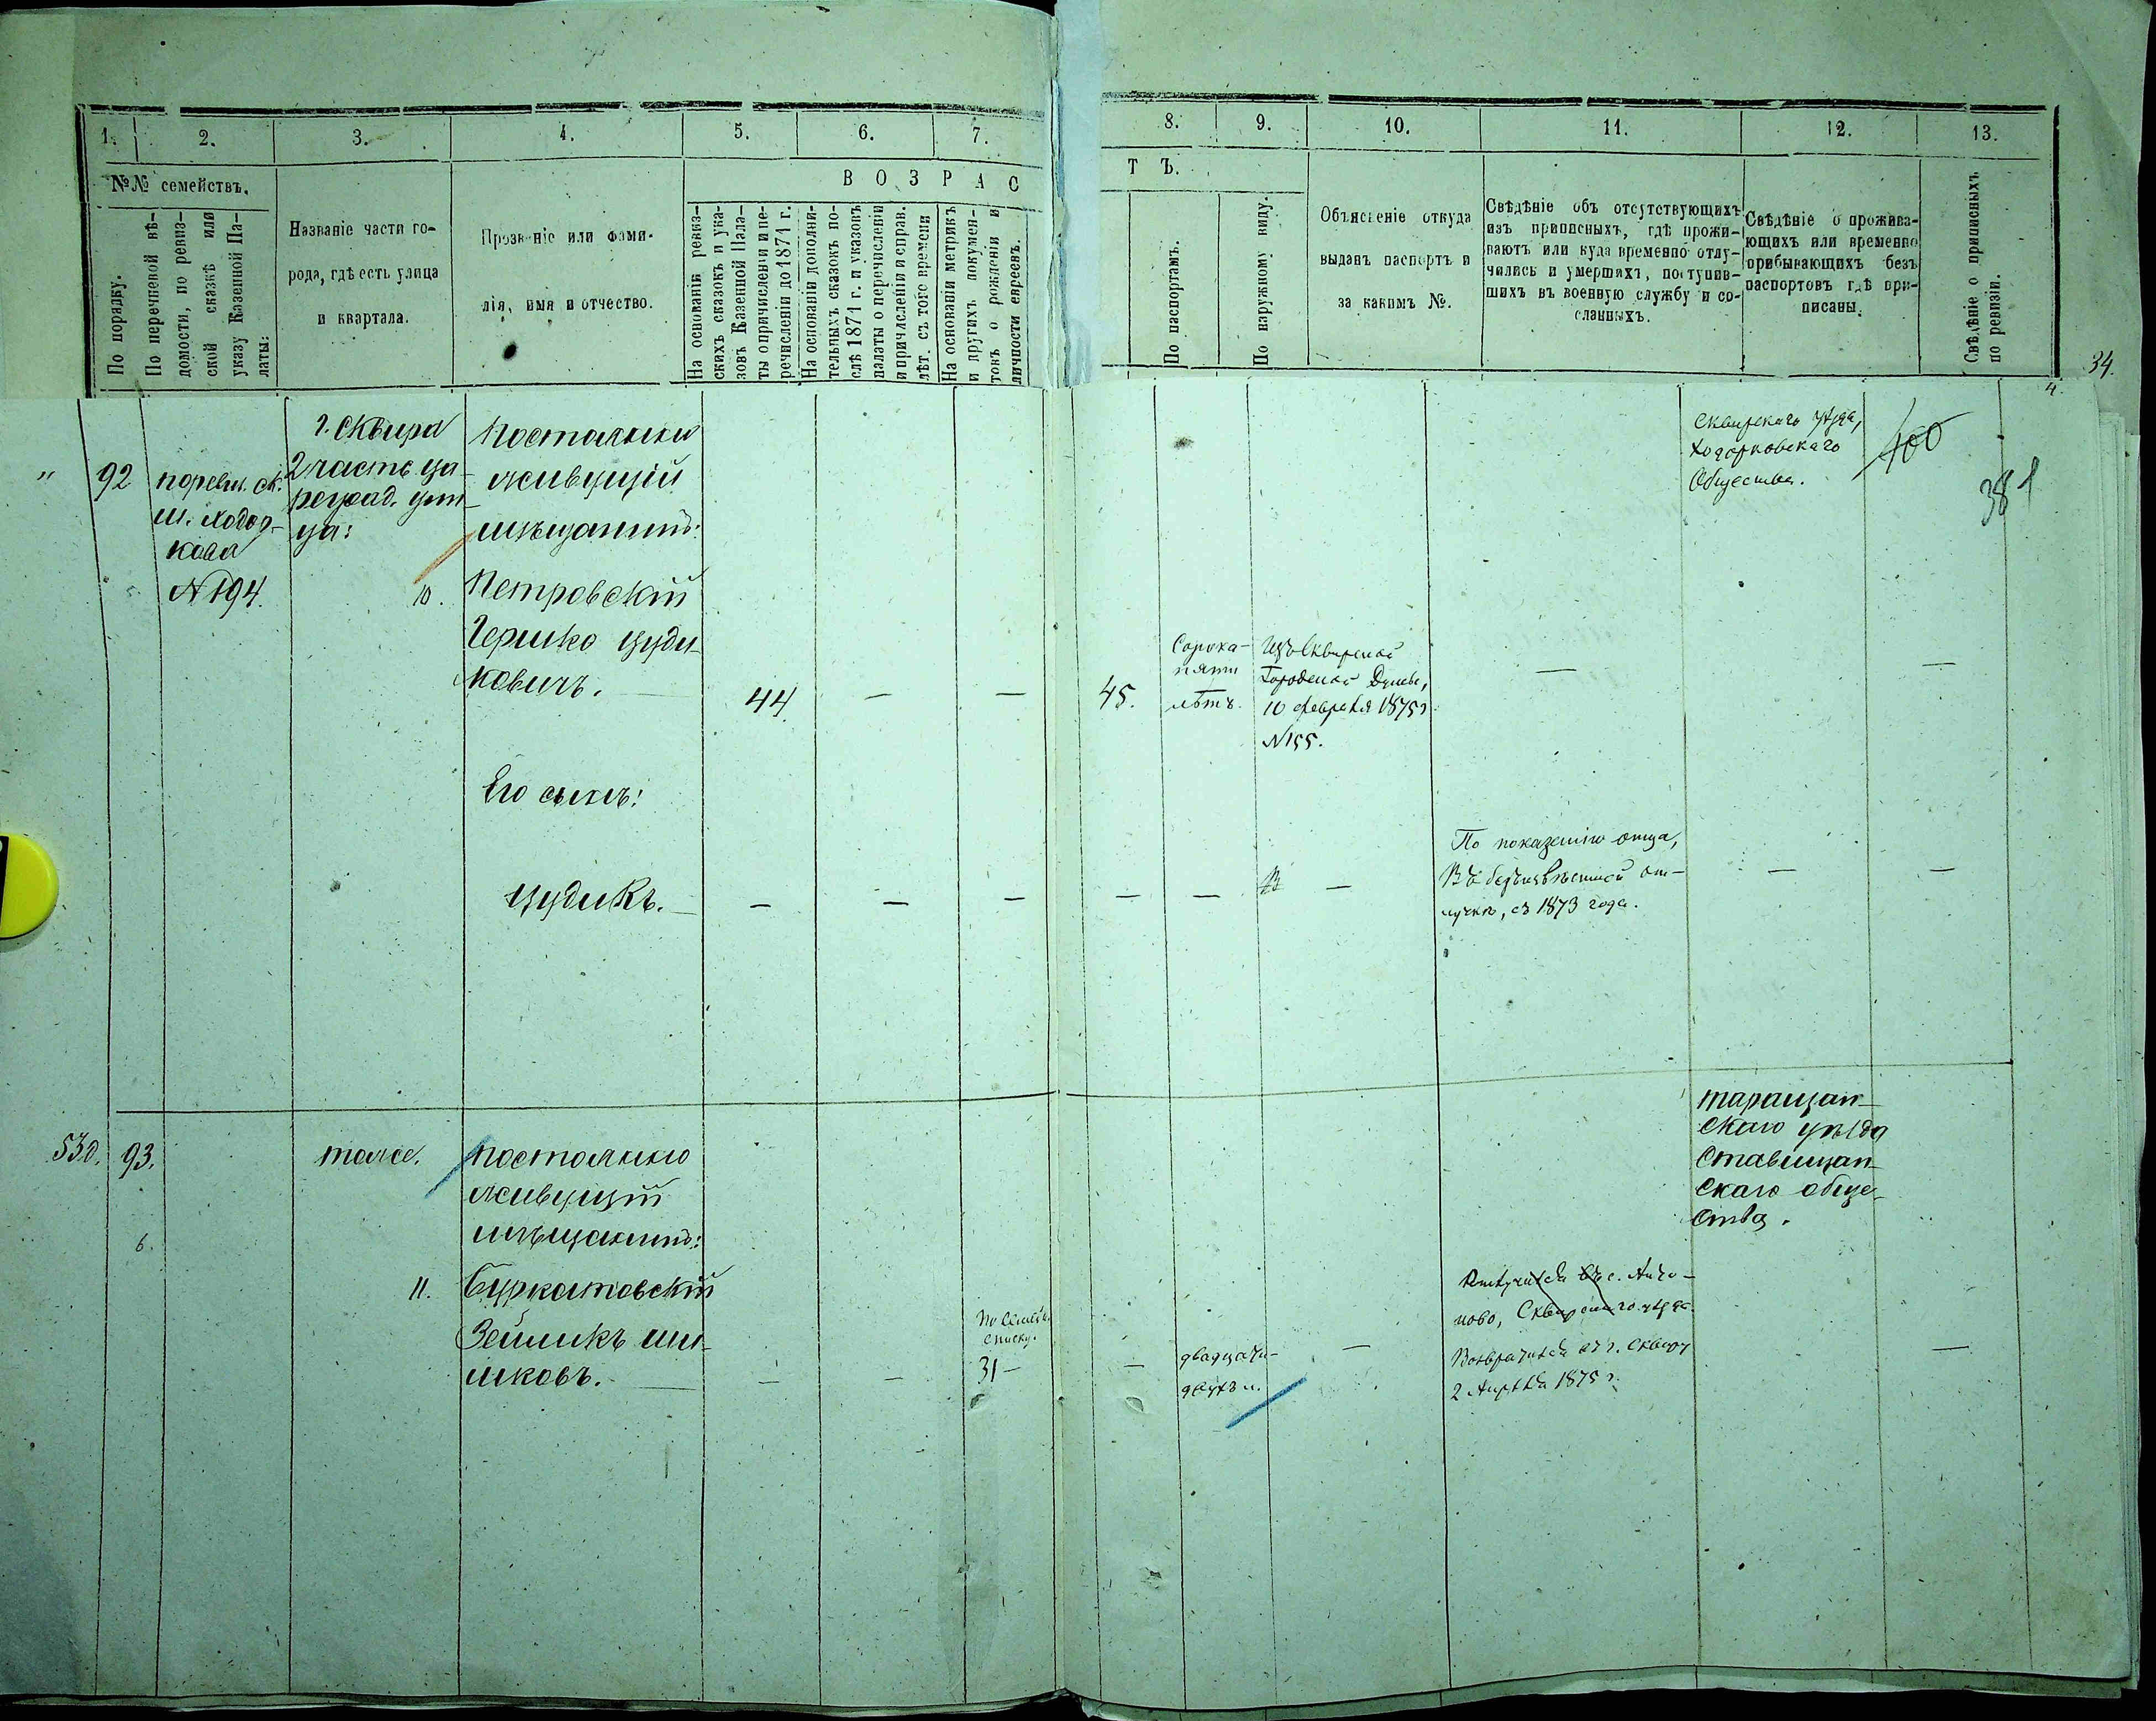 1. 2. 3. 4. 5. 6. 7. 8. 9. 10. 11. 12. 13.
№№ семействъ.
В О З Р А С Т Ъ.
По порядку.
По перечневой вѣ-
домости, по ревиз-
ской сказкѣ или
указу Казенной Па-
латы:
Названіе части го-
рода, гдѣ есть улица
и квартала.
Прозваніе или фами-
лія, имя и отчество.
На основаніи ревиз-
скихъ сказокъ и ука-
зовъ Казенной Пала-
ты о причисленіи и пе-
речисленіи до 1871 г.
На основаніи дополни-
тельныхъ сказокъ по-
слѣ 1871 г. и указовъ
палаты о перечисленіи
и причисленіи и справ.
лѣт. съ того времени
На основаніи метрикъ
и другихъ докумен-
товъ о рожденіи и
личности евреевъ.
По паспортамъ.
По наружному виду.
Объясненіе откуда
выданъ паспортъ и
за какимъ №.
Свѣдѣніе объ отсутствующихъ
изъ приписныхъ, гдѣ прожи-
ваютъ или куда временно отлу-
чились и умершихъ, поступив-
шихъ въ военную службу и со-
сланныхъ.
Свѣдѣніе о прожива-
ющихъ или временно
прибывающихъ безъ
паспортовъ гдѣ при-
писаны.
Свѣдѣніе о приписныхъ
по ревизіи.
34.
4.
" 92
по ревиз. ск.
м. Ходор-
кова
№ 194.
г. Сквира
2 часть
ца:
Постоянно
живущій
мѣщанинъ:
10. Петровскій
Гершко Цуди-
ковичъ. —
44. — — 45.
Сорока-
пяти
лѣтъ.
Изъ Сквирской
Городской Думы,
10 февраля 1875 г.
№ 155.
—
Сквирскаго уѣзда,
Ходорковскаго
Общества.
400
381
—
Его сынъ:
Цудикъ. — — — — — — —
По показанію отца,
въ безъизвѣстной от-
лучкѣ, съ 1873 года.
— —
530. 93.
6.
тоже.
постоянно
живущій
мѣщанинъ:
11. Буркатовскій
Зейликъ Ши-
мковъ. — — —
По семейн.
списку.
31 —
—
двадцати-
двухъ л.
—
Отлучился въ с. Анто-
ново, Сквирскаго уѣзда.
Возвратился въ г. Сквиру
2 Апрѣля 1875 г.
таращан-
скаго уѣзда
Ставищан-
скаго обще-
ства.
—